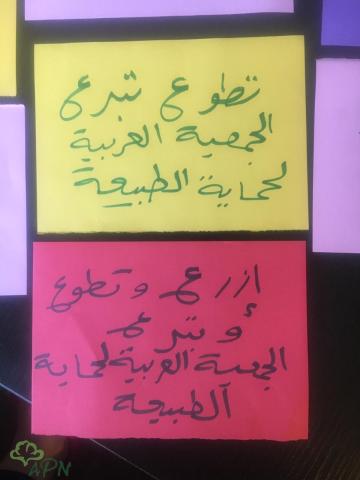 تطوع تبرع
الجمعية العربية
لحماية الطبيعة
إزرع وتطوع
وتبرع
الجمعية العربية لحماية
الطبيعة
APN